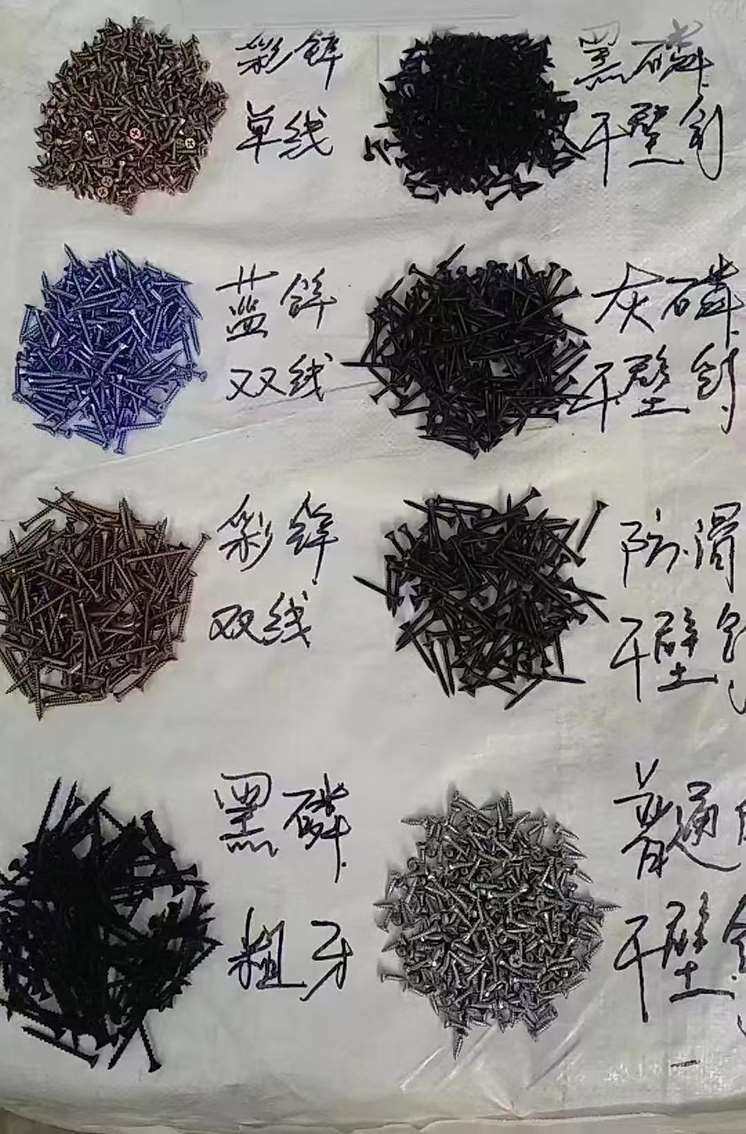 彩锌
单线
黑磷
干壁钉
蓝锌
双线
灰磷
干壁钉
彩锌
双线
防滑
干壁钉
黑磷
粗牙
普通
干壁钉